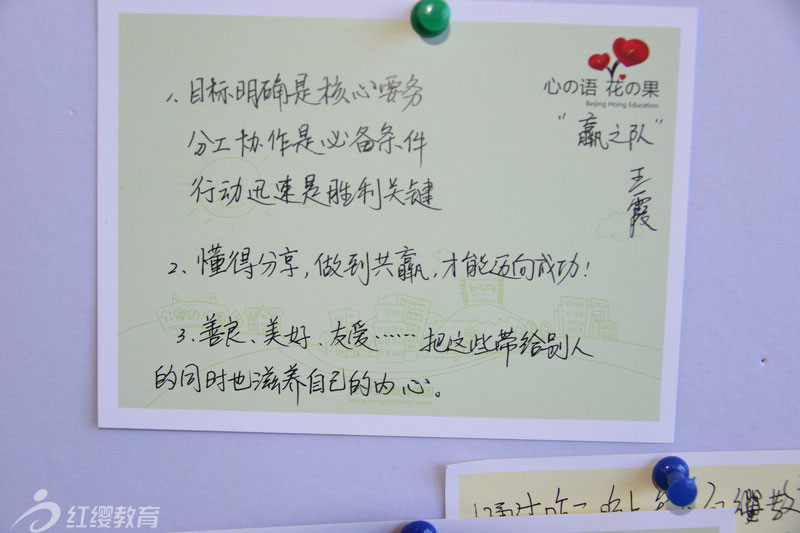 心の语 花の果
Beijing Hoing Education
“赢之队”
王霞
1、目标明确是核心要务
分工协作是必备条件
行动迅速是胜利关键
2、懂得分享，做到共赢，才能迈向成功！
3、善良、美好、友爱……把这些带给别人
的同时也滋养自己的内心。
红缨教育